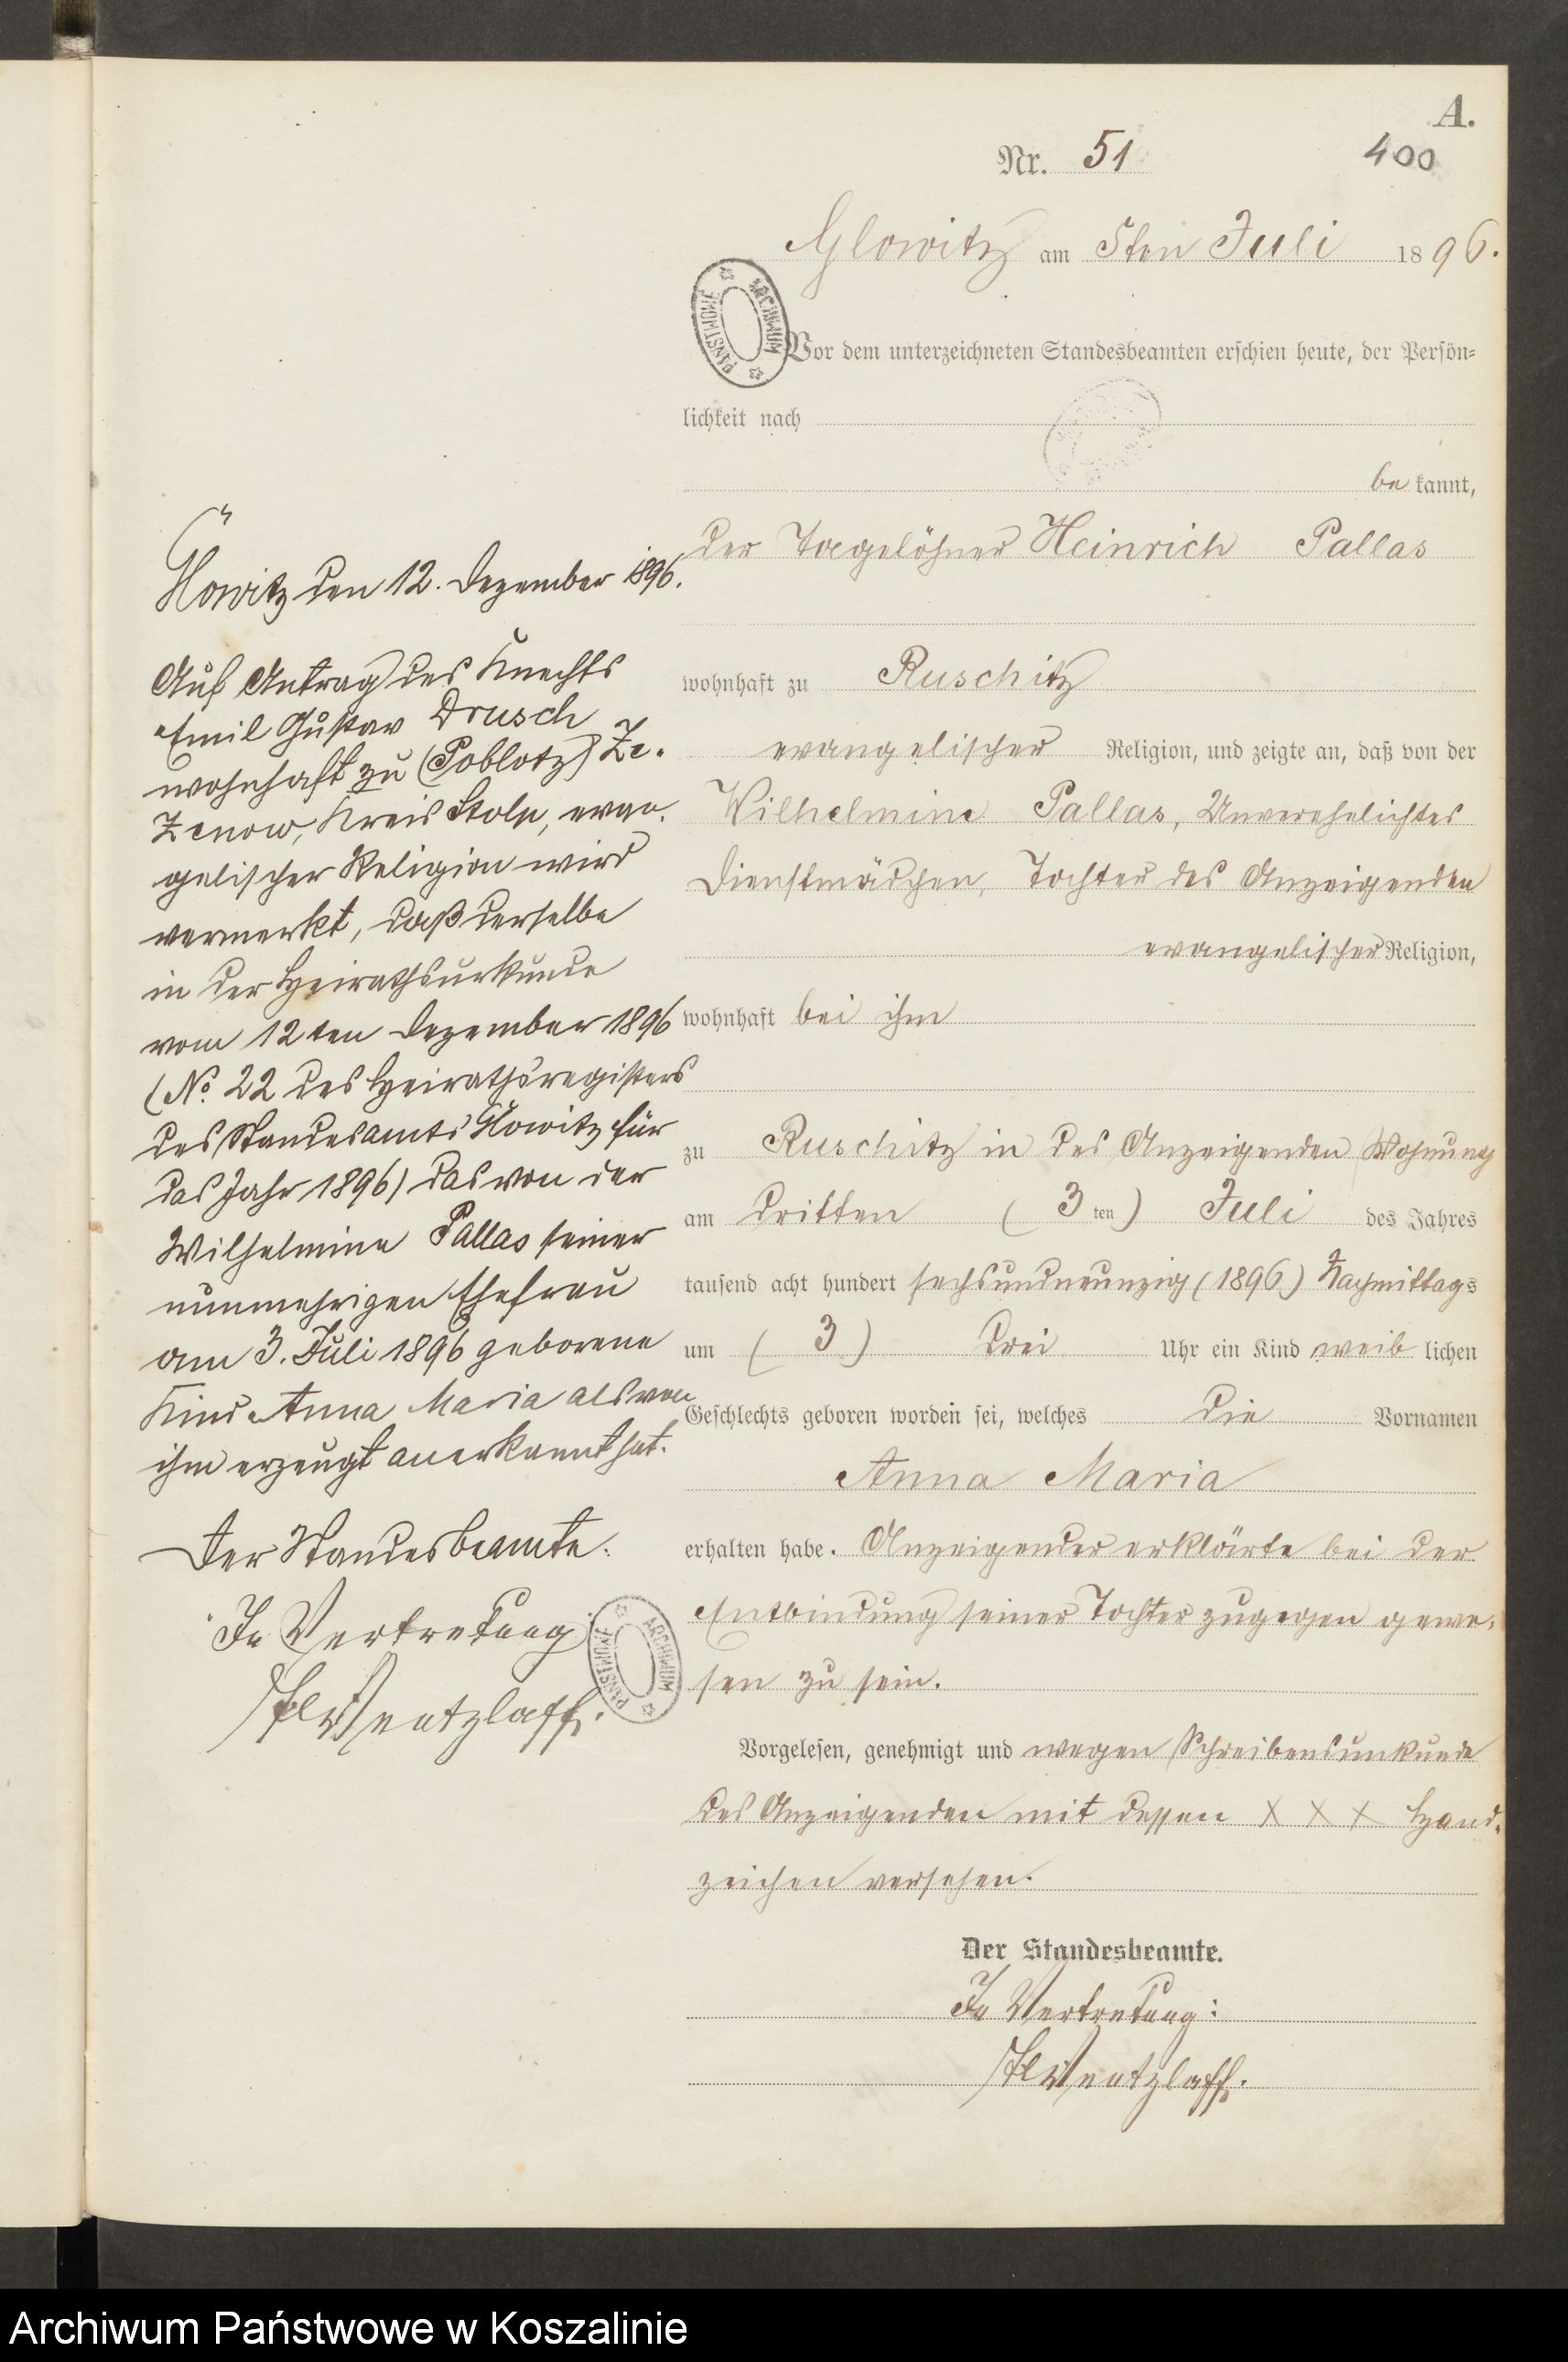 A.
Nr. 51
400
Glowitz am 5ten Juli 1896.
ARCHIWUM PAŃSTWOWE
Vor dem unterzeichneten Standesbeamten erschien heute, der Persön-
lichkeit nach
be kannt,
der Tagelöhner Heinrich Pallas
wohnhaft zu Ruschitz
evangelischer Religion, und zeigte an, daß von der
Wilhelmine Pallas, Unverehelichtes
Dienstmädchen, Tochter des Anzeigenden
evangelischer Religion,
wohnhaft bei ihm
zu Ruschitz in des Anzeigenden Wohnung
am dritten (3 ten) Juli des Jahres
tausend acht hundert sechsundneunzig (1896) Nachmittags
um (3) drei Uhr ein Kind weib lichen
Geschlechts geboren worden sei, welches die Vornamen
Anna Maria
erhalten habe. Anzeigender erklärte bei der
Entbindung seiner Tochter zugegen gewe-
sen zu sein.
Vorgelesen, genehmigt und wegen Schreibensunkunde
des Anzeigenden mit dessen X X X Hand-
zeichen versehen.
Der Standesbeamte.
In Vertretung:
Wentzlaff.
Glowitz den 12. Dezember 1896.
Auf Antrag des Knechts
Emil Gustav Drusch
wohnhaft zu (Poblotz) Ze-
Zenow, Kreis Stolp, evan-
gelischer Religion wird
vermerkt, daß derselbe
in der Heirathsurkunde
vom 12ten Dezember 1896
(No. 22 des Heirathsregisters
des Standesamts Glowitz für
das Jahr 1896) das von der
Wilhelmine Pallas seiner
nunmehrigen Ehefrau
am 3. Juli 1896 geborene
Kind Anna Maria als von
ihm erzeugt anerkannt hat.
Der Standesbeamte.
In Vertretung
Wentzlaff.
ARCHIWUM PAŃSTWOWE
Archiwum Państwowe w Koszalinie